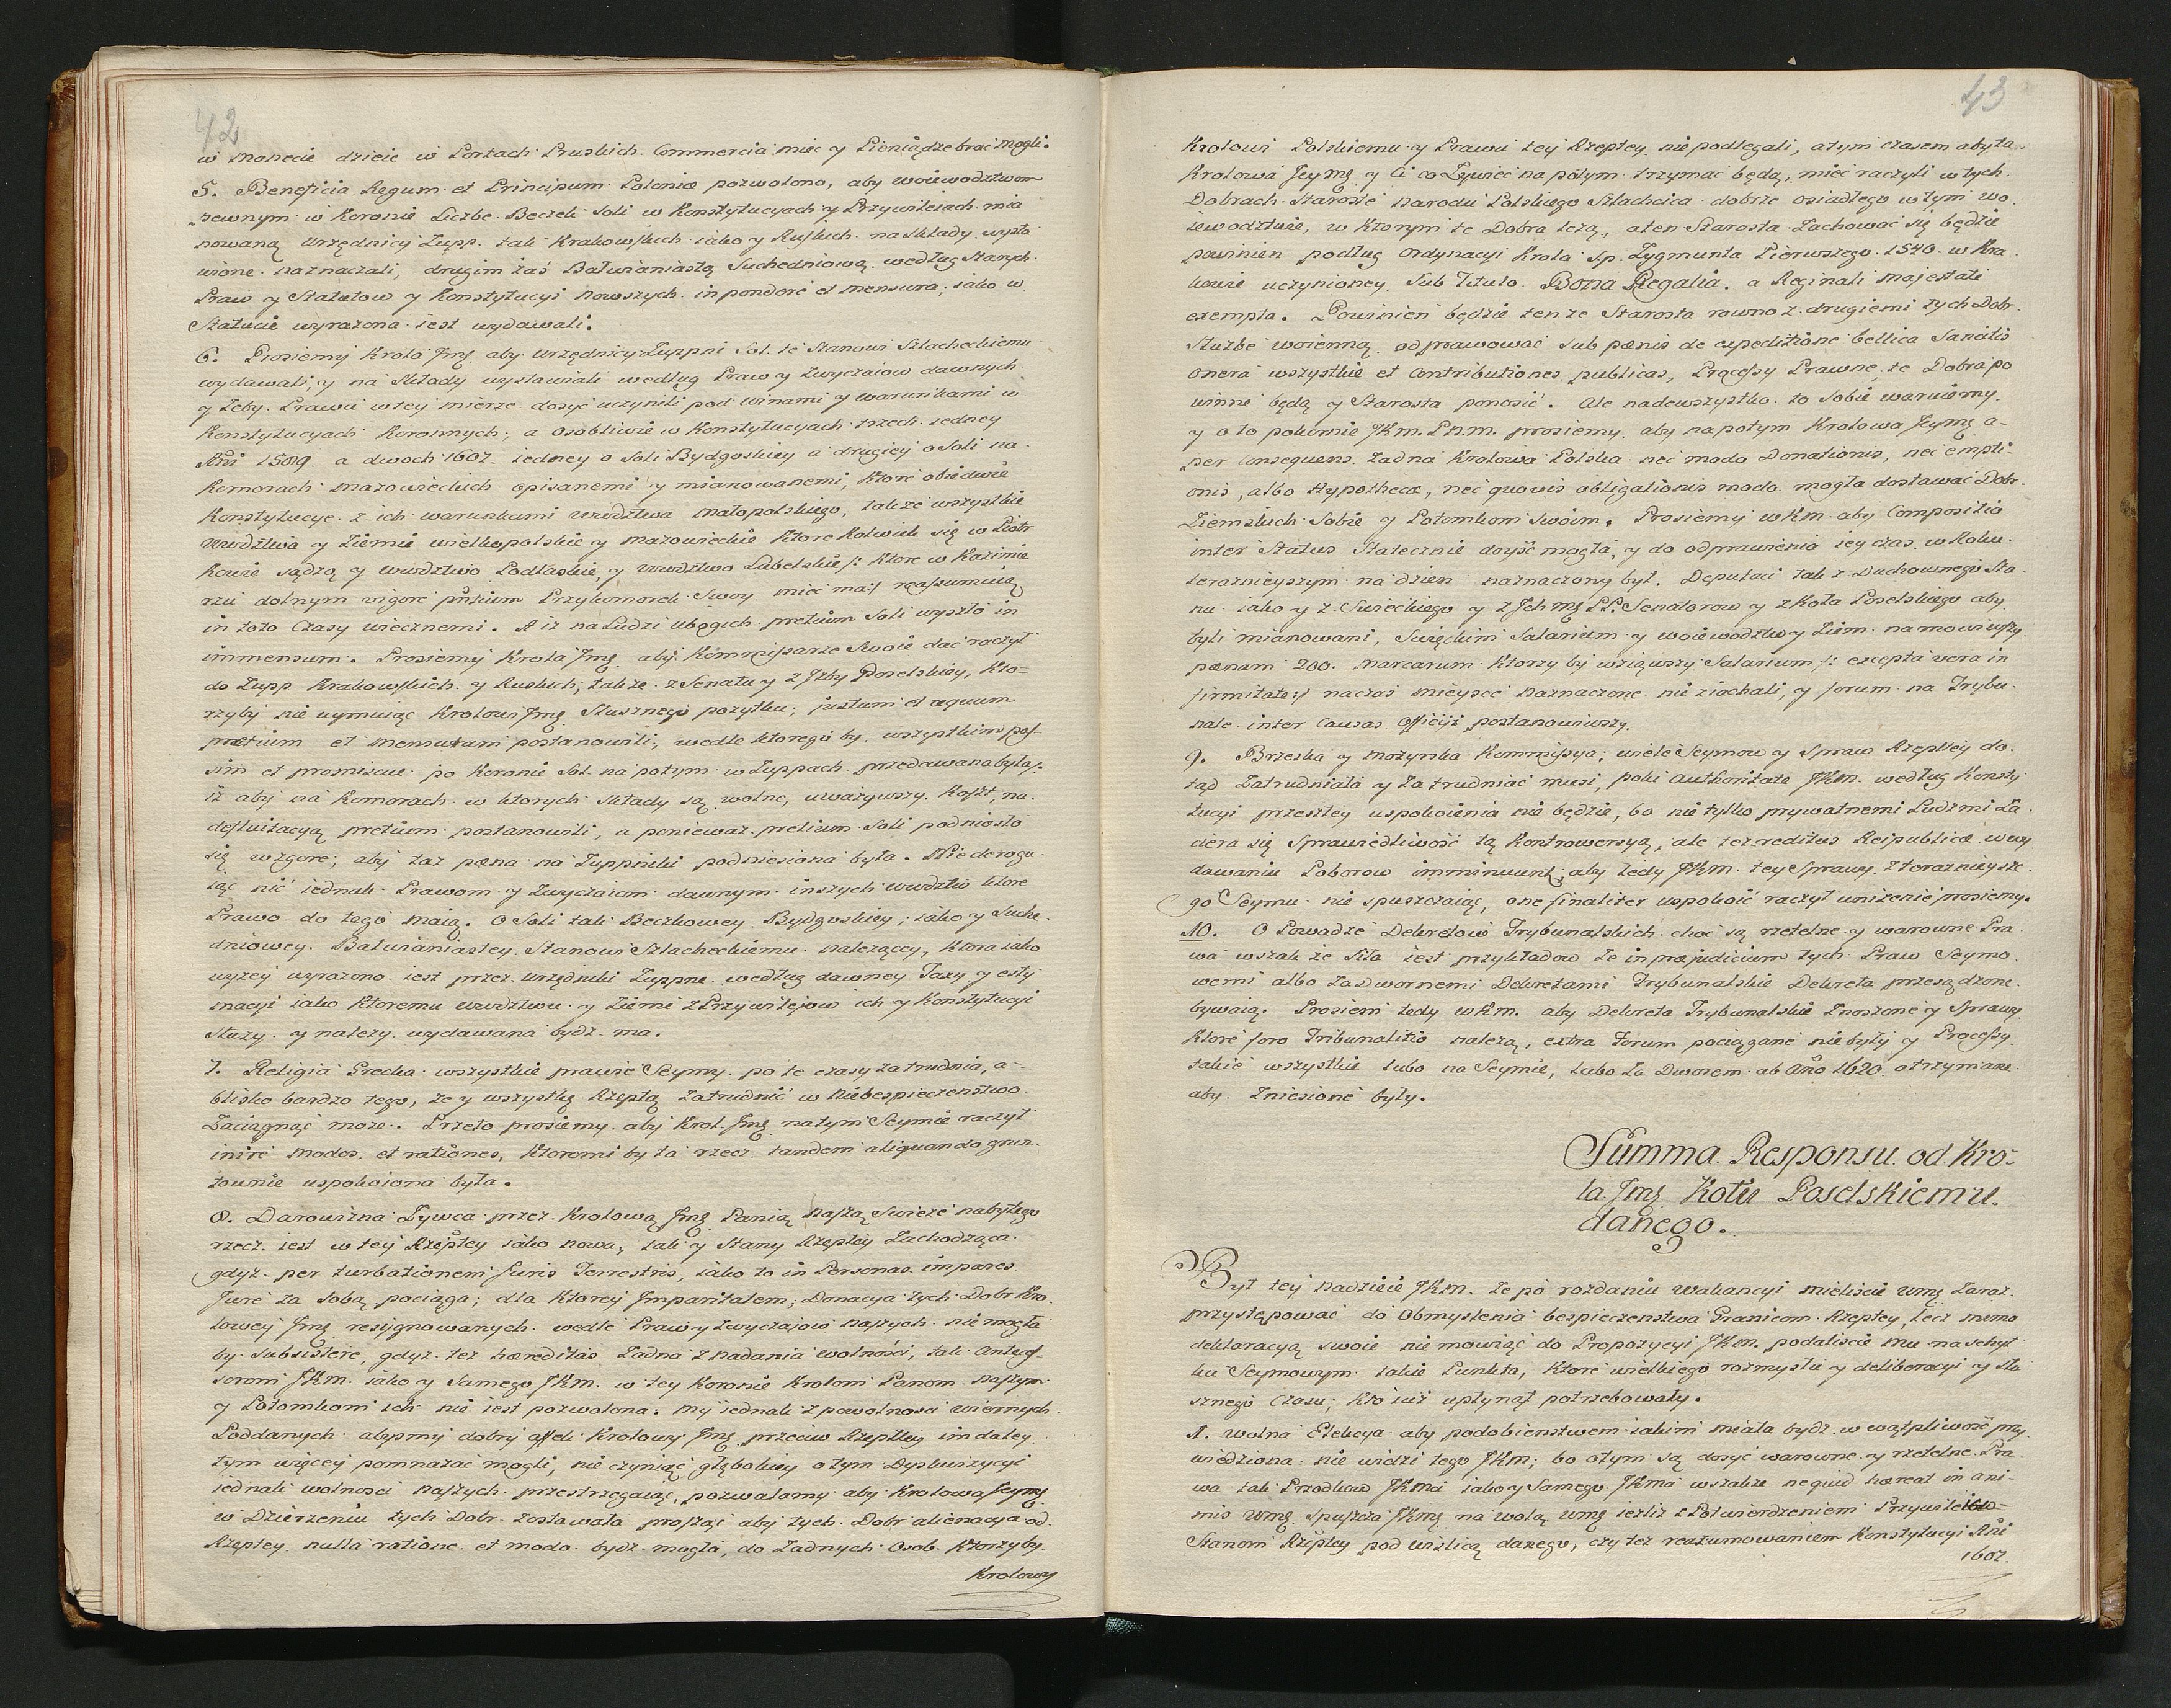 42
w Monecie dzieie w Portach Pruskich. Commercia miec y Pieniądze brać mogli.
5. Beneficia Regum et Principum Poloniæ pozwolono, aby woiewodztwom
pewnym w Koronie Liczbe Beczek Soli w Konstytucyach y Przywileiach mia
nowaną Urzędnicy Zupp. tak Krakowskich iako y Ruskich na Składy wysta
wione naznaczali, drugim zaś Bałwaniastą Suchedniową według Starych
Praw y Statutow y Konstytucyi nowszych in pondere et mensura; iako w
Statucie wyrażona iest wydawali.
6. Prosiemy Krola Jmę aby Urzędnicy Zuppni Sol te Stanowi Szlacheckiemu
wydawali, y na Składy wystawiali według Praw y Zwyczaiow dawnych
y żeby Prawu w tey mierze dosyć uczynili pod winami y warunkami w
Konstytucyach Koronnych; a osobliwie w Konstytucyach trzech iedney
Ani 1589. a dwoch 1607. iedney o Soli Bydgoskiey a drugiey o Soli na
Komorach mazowieckich opisanemi y mianowanemi, Ktore obiedwie
Konstytucye z ich warunkami wwdztwa małopolskiego, także wszystkie
wwdztwa y Ziemie wielkopolskie y mazowieckie Ktore Kolwiek się w Piotr
kowie sądzą y wwdztwo Podlaskie, y wwdztwo Lubelskie /: Ktore w Kazimie
rzu dolnym vigore Przykomorek Swoy miec ma:/ reassumuią
in toto Czasy wiecznemi. A iż na Ludzi Ubogich pretium Soli wyszło in
immensum. Prosiemy Krola Jmę aby Kommissarze Swoie dać raczył
do Zupp Krakowskich y Ruskich; także z Senatu y z Jzby Poselskiey, Kto=
rzyby nie uymuiąc Krolowi Jmę Słusznego pozytku; justum et æquum
pretium et mensuram postanowili, wedle ktorego by wszystkim pas
sim et promiscue po Koronie Sol na potym w Zuppach przedawana była:
iż aby na Komorach w ktorych Składy są wolne, uważywszy Koszt, na
defluitacyą pretium postanowili, a ponieważ pretium Soli podniosło
się wzgore; aby taż pæna na Zuppniki podniesiona była. Nie derogu
iąc nic iednak Prawom y Zwyczaiom dawnym inszych wwdztw ktore
Prawo do tego maią. O Soli tak Beczkowey Bydgoskiey; iako y Suche
dniowey Bałwaniastey Stanowi Szlacheckiemu nalezącey, Ktora iako
wyzey wyrazono iest przez Urzędniki Zuppne według dawney Taxy y esty
macyi iako Ktoremu wwdztwu y Ziemi z Przywilejow ich y Konstytucyi
Służy y nalezy wydawana bydz ma.
7. Religia Grecka wszystkie prawie Seymy po te czasy zatrudnia, a=
blisko bardzo tego, że y wszystkę Rzeptą Zatrudnić w Niebespieczenstwo
Zaciągnąć może. Przeto prosiemy aby Krol Jmę na tym Seymie raczył
inire modos et rationes, Ktoremi by ta rzecz tandem aliquando grun
townie uspokoiona była.
8. Darowizna Zywca przez Krolową Jmę Panią Naszą Swieże nabytego
rzecz iest w tey Rzeptey iako nowa, tak y Stany Rzeptey Zachodząca
gdyż per turbationem Juris Terrestris, iako to in Personas impares
Jure za sobą pociąga; dla Ktorey Imparitatem; Donacya tych Dobr Kro
lowey Jmę resygnowanych wedle Praw y Zwyczajow naszych nie mogła
by subsistere, gdyż też hæreditas żadna z nadania wolności, tak Anteces
sorom JKm. iako y Samego JKm. w tey Koronie Krolom Panom naszym
y Potomkom ich nie iest pozwolona. My iednak z powolnosci wiernych
Poddanych abysmy dobry affekt Krolowy Jmę przeciw Rzeptey im daley
tym więcey pomnażać mogli, nie czyniąc głębokiey o tym Dyskuszycyi
iednak wolnosci naszych przestrzegaiąc, pozwalamy aby Krolowa Jeymę
w Dzierzeniu tych Dobr zostawała prosząc aby tych Dobr alienacya od
Rzeptey nulla ratione et modo bydz mogła, do żadnych Osob Ktorzy by
Krolowy
43
Krolowi Polskiemu y Prawu tey Rzeptey nie podlegali, a tym czasem aby ta
Krolowa Jeymę y Ci co Zywiec na potym trzymać będą, mieć raczyli w tych
Dobrach Staroste narodu Polskiego Szlachcica dobrze osiadłego w tym wo
iewodztwie, w Ktorym te Dobra leżą, a ten Starosta Zachować się będzie
powinien podług Ordynacyi Krola Sp. Zygmunta Pierwszego 1540. w Kra
kowie uczynioney, Sub Titulo. Bona Regalia. a Reginali majestate
exempta. Powinien będzie tenże Starosta rowno z drugiemi tych Dobr
Służbę woienną odprawować sub pænis de expeditione bellica Sancitis
onera wszystkie et Contributiones publicas, Processy Prawne, te Dobra po
winne będą y Starosta ponosić. Ale nadewszystko to sobie waruiemy
y o to pokornie JKm. P.n.m. prosiemy, aby na potym Krolowa Jeymę a=
per Consequens żadna Krolowa Polska nec modo Donationis, nec empti=
onis, albo Hypothecæ, nec quovis obligationis modo mogła dostawać Dobr
Ziemskich Sobie y Potomkom Swoim. Prosiemy wKm. aby Compositio
inter Status Statecznie doyść mogła, y do odprawienia iey czas w Roku
teraznieyszym na dzien naznaczony był. Deputaci tak z Duchownego Sta
nu iako y z Swieckiego y z Jch mę PP. Senatorow y z Koła Poselskiego aby
byli mianowani, Swieckim Salarium y woiewodztwy Ziem namowiwszy
pænam 200. Marcarum Ktorzy by wziąwszy Salarium /: excepta vera in
firmitate:/ na czas mieysce naznaczone nie ziachali, y forum na Trybu
nale inter Causas Officii postanowiwszy.
9. Brzeska y Mozyrska Kommissya; wiele Seymow y Spraw Rzeptey do
tąd Zatrudniała y Zatrudniać musi, poki authoritate JKm. według Konsty
tucyi przeszłey uspokoienia nie będzie, bo nie tylko prywatnemi Ludzmi Za
ciera się Sprawiedliwość tą Kontrowersyą, ale też reditus Reipublicæ w wy
dawaniu Poborow imminuunt; aby tedy JKm. tey Sprawy z teraznieysze
go Seymu nie spuszczaiąc, one finaliter uspokoić raczył uniżenie prosiemy.
10. O Powadze Dekretow Trybunalskich choć są rzetelne y warowne Pra
wa wszak że Siła iest przykładow że in præjudicium tych Praw Seymo
wemi albo Zadwornemi Dekretami Trybunalskie Dekreta przesądzone
bywaią. Prosiem tedy wKm. aby Dekreta Trybunalskie Znoszone y Sprawy
Ktore foro Tribunalitio nalezą, extra Forum pociągane nie były y Processy
takie wszystkie lubo na Seymie, lubo za Dworem ab Año 1620. otrzymane
aby Zniesione były.
Summa Responsu od Kro=
la Jmę Kołu Poselskiemu
danego.
Był tey nadzieie JKm. że po rozdaniu Wakancyi mieliscie Wmę Zaraz
przystępować do Obmyslenia bespieczenstwa Granicom Rzeptey, lecz mimo
deklaracyą swoie nie mowiąc do Propozycyi JKm. podaliscie mu na schył
ku Seymowym takie Punkta, Ktore wielkiego rozmysłu y deliberacyi y słu
sznego Czasu; kto iuż upłynął potrzebowały.
1. Wolna Elekcya aby podobienstwem iakim miała bydz w wątpliwość przy
wiedziona nie widzi tego JKm; bo o tym są dosyć warowne y rzetelne Pra
wa tak Przodkow JKmci iako y Samego JKmci wszakże ne quid hæreat in ani=
mis Wmę Spuszcza JKmę na wolą Wmę ieżliż z Potwierdzeniem Przywileiu=
Stanom Rzeptey pod wislicą danego, czy też reassumowaniem Konstytucyi Ani
1607.